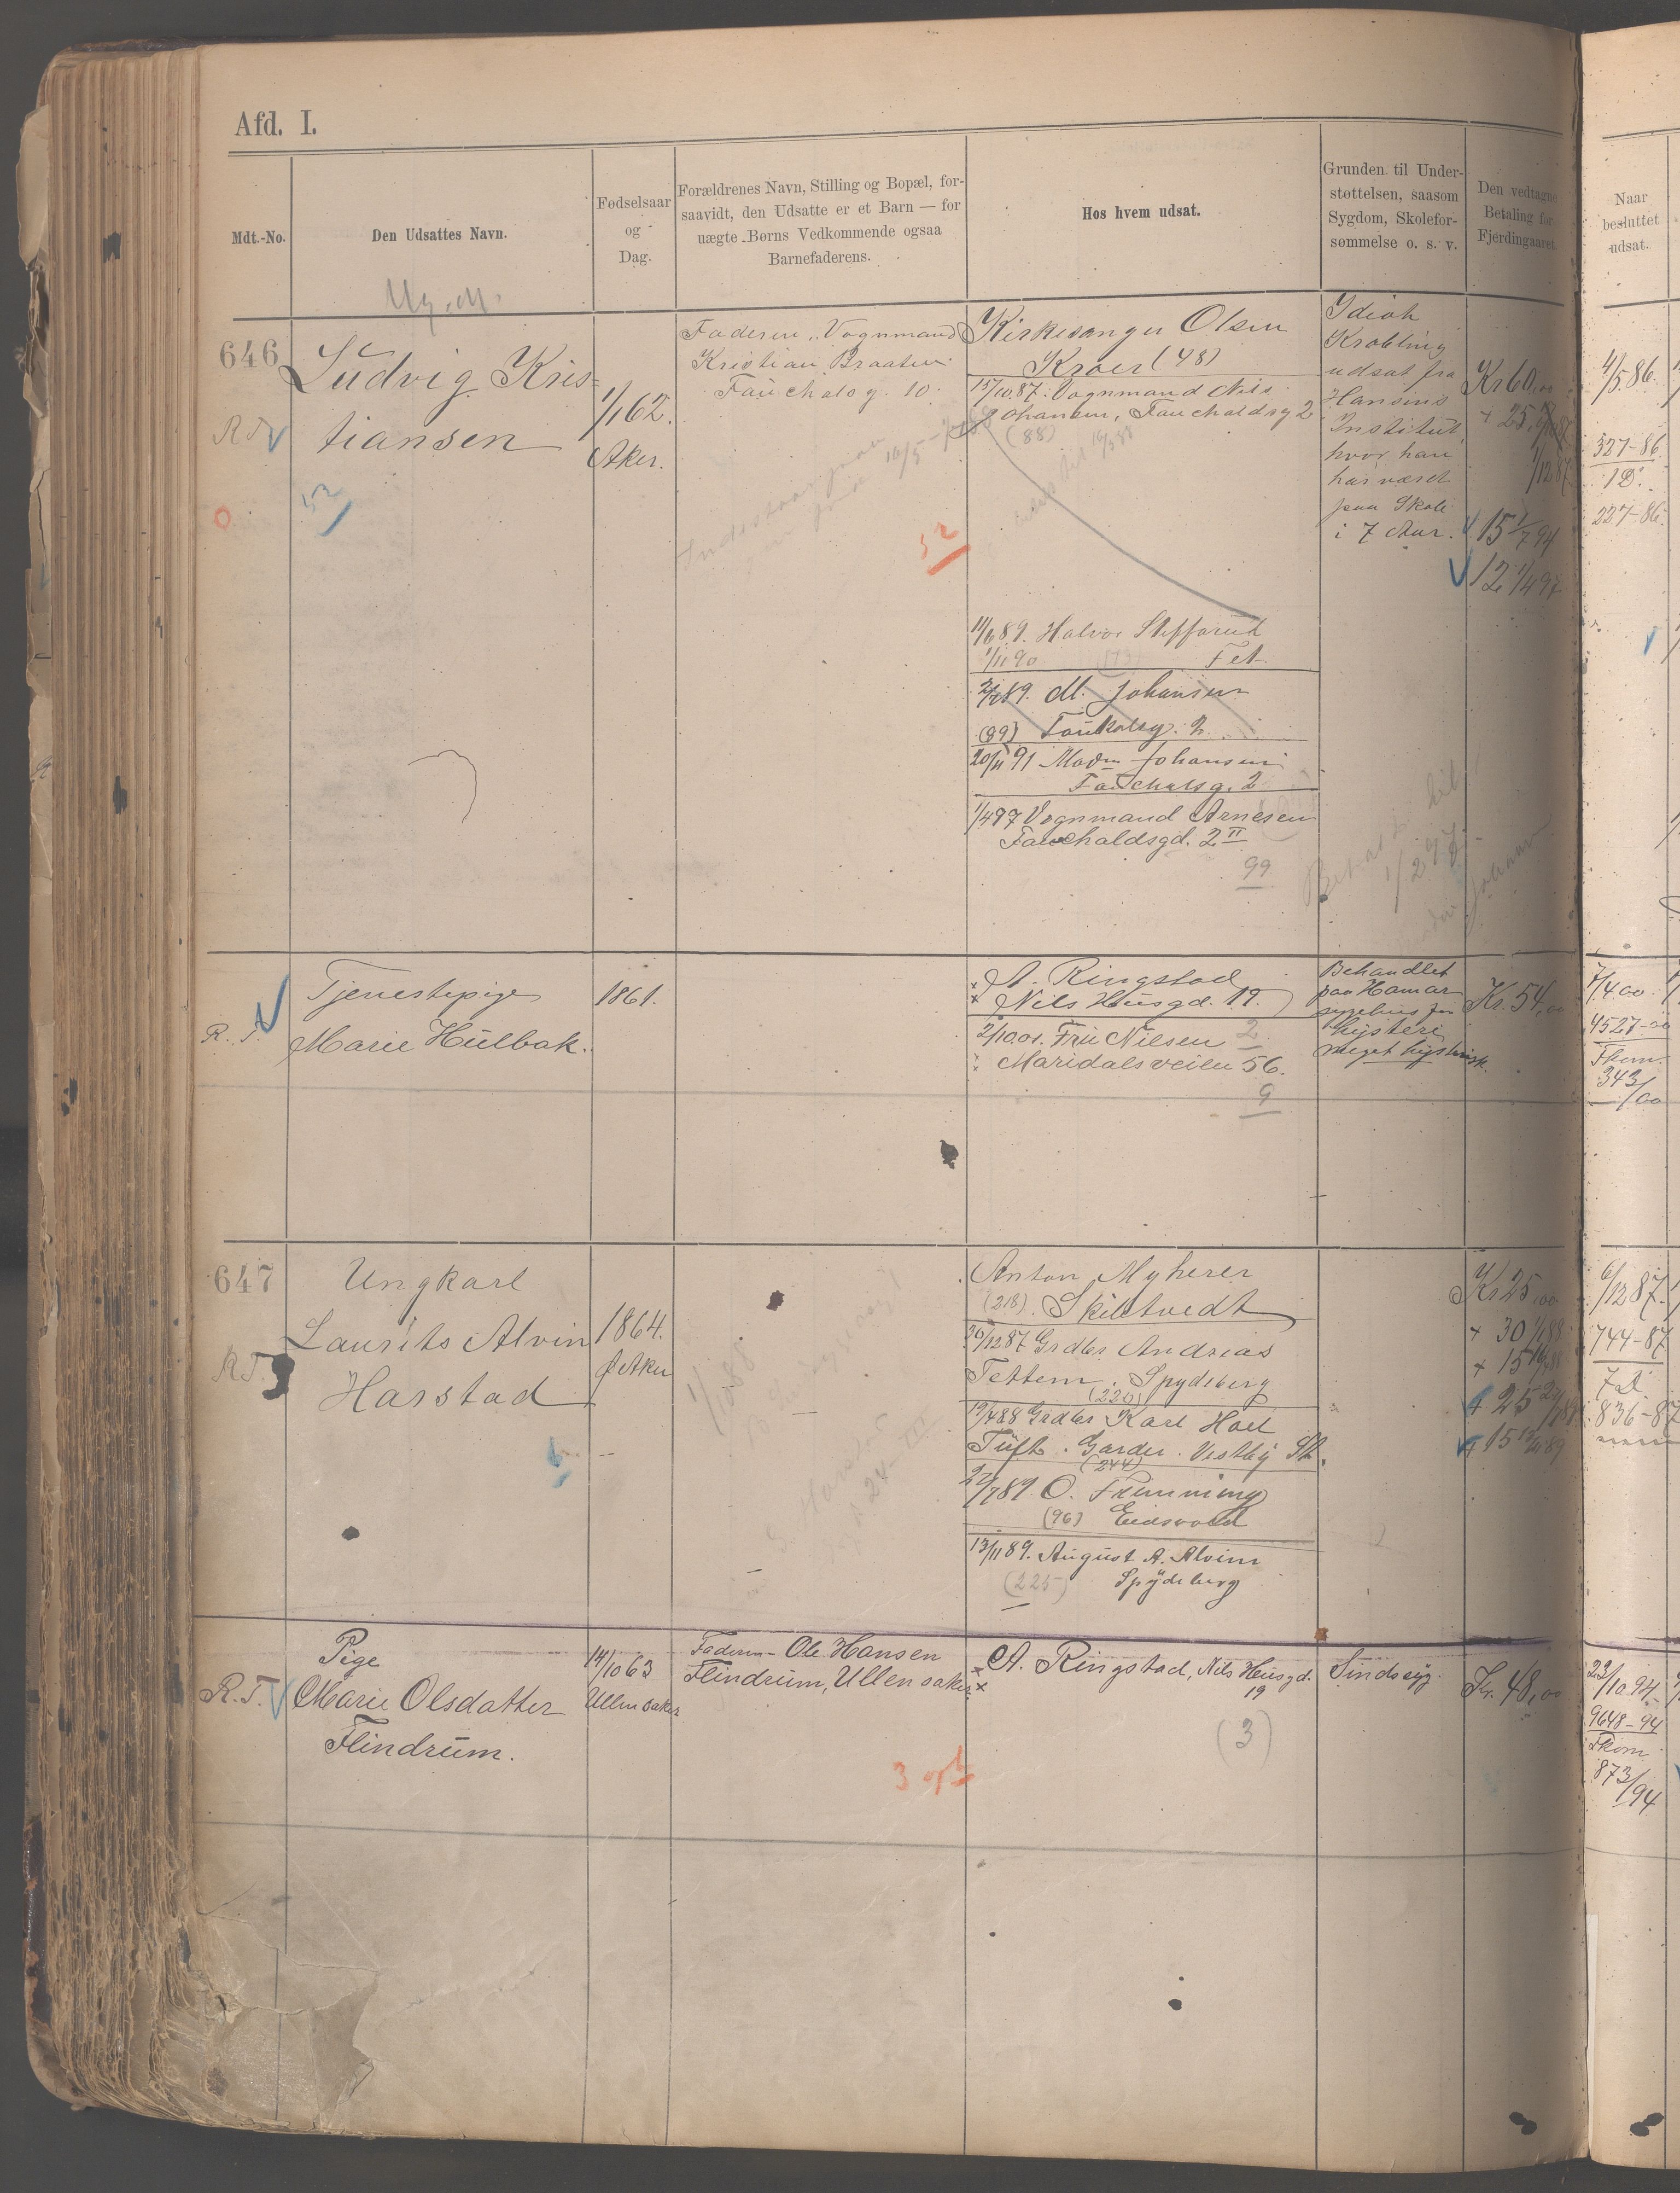 Afd. I.
Mdt.-No.
Den Udsattes Navn.
Fødselsaar
og
Dag.
Forældrenes Navn, Stilling og Bopæl, for-
saavidt, den Udsatte er et Barn — for
uægte Børns Vedkommende ogsaa
Barnefaderens.
Hos hvem udsat.
Grunden til Under-
støttelsen, saasom
Sygdom, Skolefor-
sømmelse o. s. v.
Den vedtagne
Betaling for
Fjerdingaaret
Naar
besluttet
udsat.
646
Ludvig Kris-
tiansen
52
1/1 62.
Aker.
Faderen, Vognmand
Kristian Braaten
Fauchalsg. 10.
52
Kirkesanger Olsen
Kroer (48)
15/10.87. Vognmand Nils
Johansen, Fauchaldsg 2
(88)
11/6 89. Halvor
1/11 90 Fet.
2/7 89. M. Johansen
(99) Faukalsg. 2.
20/11 91 Madm Johansen
Fauchalsg. 2
1/4 97 Vognmand Arnesen
Fauchaldsgd. 2 II
99
Idiot
Krøbling
udsat fra
Hansens
Institut,
hvor han
har været
paa Skole
i 7 Aar.
Kr 60,00
+ 25,
1/12 87
15 1/7 94
12 1/4 97
4/5 86.
327-86
1D.
227-86.
R. T.
Tjenestepige
Marie Hulbak.
1861.
A. Ringstad
Nils Husgd. 19.
2/10.01. Fru Nilsen 2
Maridalsveien 56.
9
Behandlet
paa Hamar
sygehus for
hysteri
meget hysterisk.
Kr. 54,00
7/4 00
4527-00
Fkom.
343/00
647
R.T.
Ungkarl
Laurits Alvin
Harstad
1864.
Aker
6
1/10 88
Anton Myherer
(218). Skibtvedt
30/12 87 Grdbr. Andreas
Tettem. Spydeberg
(220)
19/4 88 Grdbr Karl Hoel
Tuft. Garder. Vestby St.
(244)
22/7 89 O. Flemming
(96) Eidsvold
13/11 89. August A. Alvim
(225) Spydeberg
Kr 25,00
+ 30 1/1 88
+ 15
+ 25
+ 15
6/12 87.
744-87
7D.
836-87
R.T.
Pige
Marie Olsdatter
Flindrum.
14/10 63
Ullensaker
Faderen Ole Hansen
Flindrum, Ullensaker
3
A. Ringstad, Nils Husgd.
19
(3)
Sindssyg.
Kr. 48,00
23/10.94
9648-94
Fkom
873/94